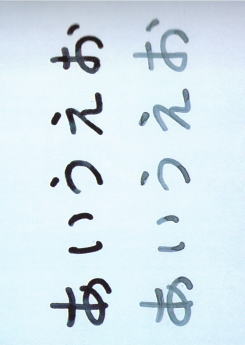 あいうえお
あいうえお